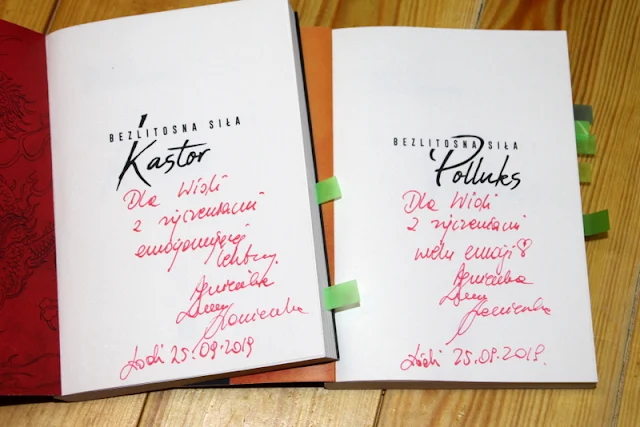 BEZLITOSNA SIŁA
Kastor
Dla Wiki
z życzeniami
emocjonującej
lektury
Agnieszka
Łódź 25.09.2019
BEZLITOSNA SIŁA
Polluks
Dla Wiki
z życzeniami
wielu emocji
Agnieszka
Łódź 25.09.2019.